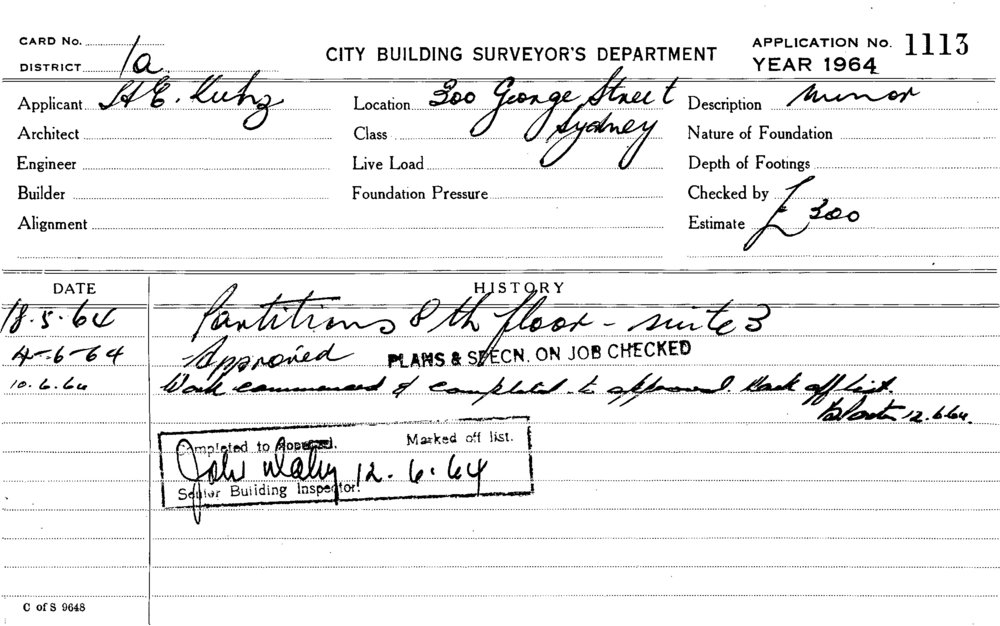 CARD No.
DISTRICT 1a
CITY BUILDING SURVEYOR'S DEPARTMENT
APPLICATION No. 1113
YEAR 1964
Applicant H E. Kuhz
Location 300 George Street
Sydney
Description Minor
Architect
Class
Nature of Foundation
Engineer
Live Load
Depth of Footings
Builder
Foundation Pressure
Checked by
Alignment
Estimate £300
DATE
HISTORY
18.5.64 Partitions 8th floor - suite 3
4-6-64 Approved PLANS & SPECN. ON JOB CHECKED
10.6.64 Work commenced & completed to approval. Mark off list.
12.6.64.
Completed to Approval. Marked off list.
John 12.6.64
Senior Building Inspector.
C of S 9648